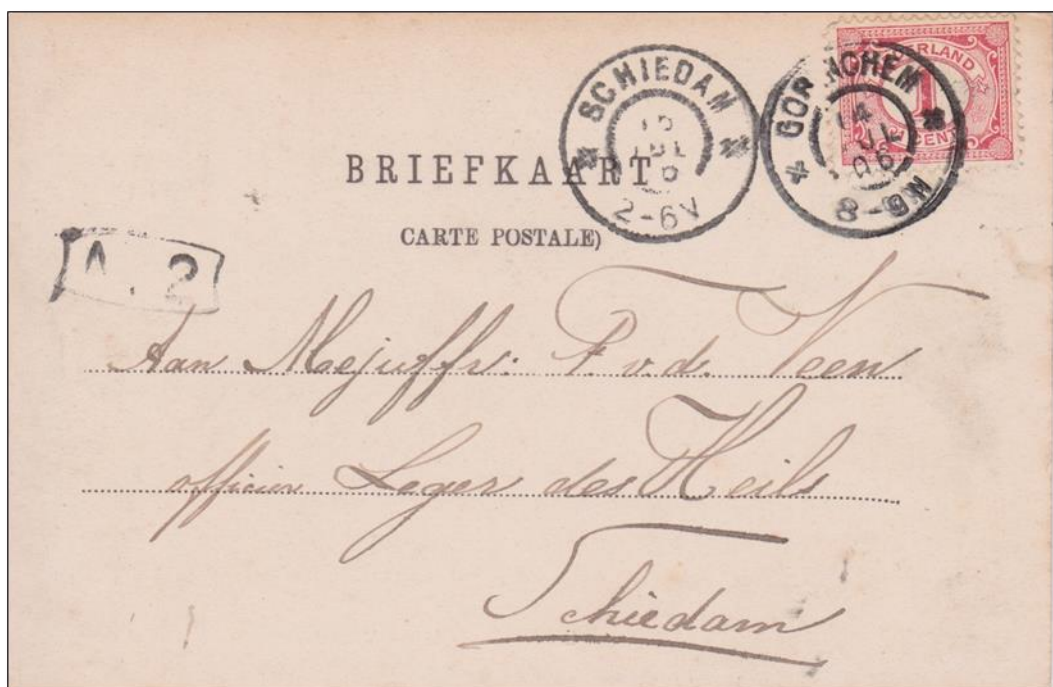 NEDERLAND
1
CENT
SCHIEDAM
15 JUL 06
2-6V
GORINCHEM
14 JUL 06
8-9N
BRIEFKAART
CARTE POSTALE)
A. 2
Aan Mejuffr: P. v. d. Veen
officier Leger des Heils
Schiedam